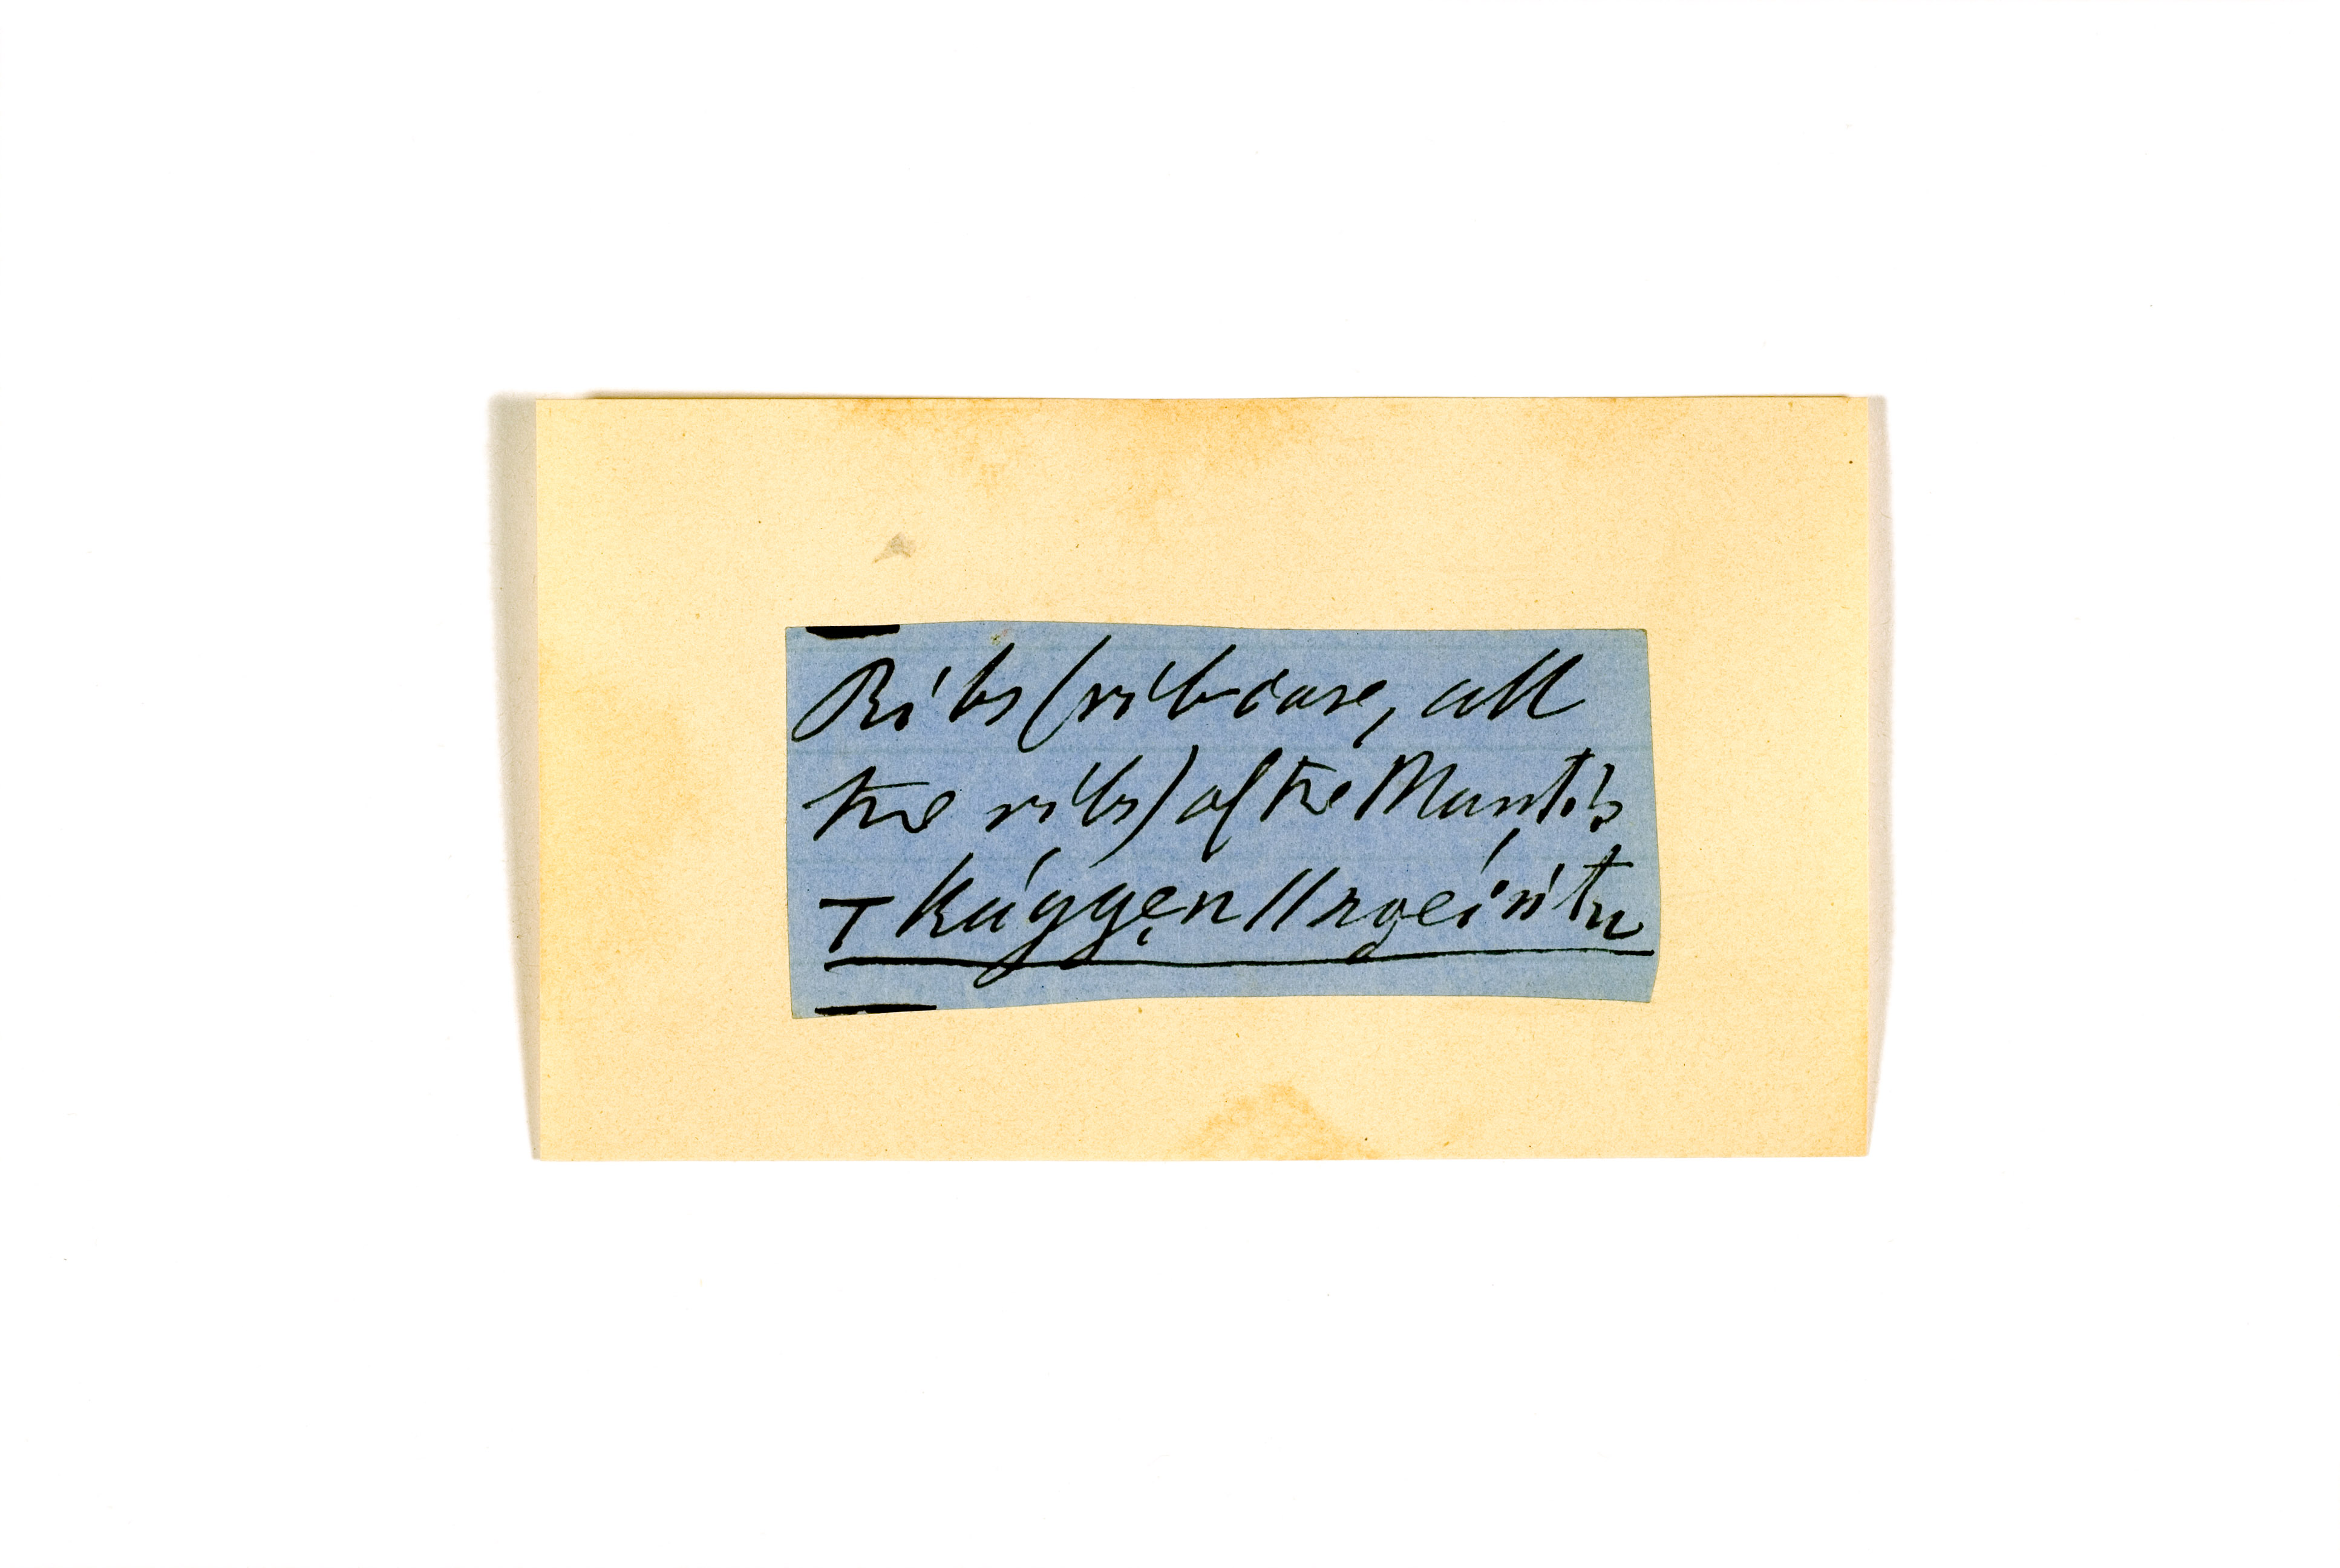 Ribs (rib case, all
the ribs) of the Mantis
T kággęn //nọeíńtu